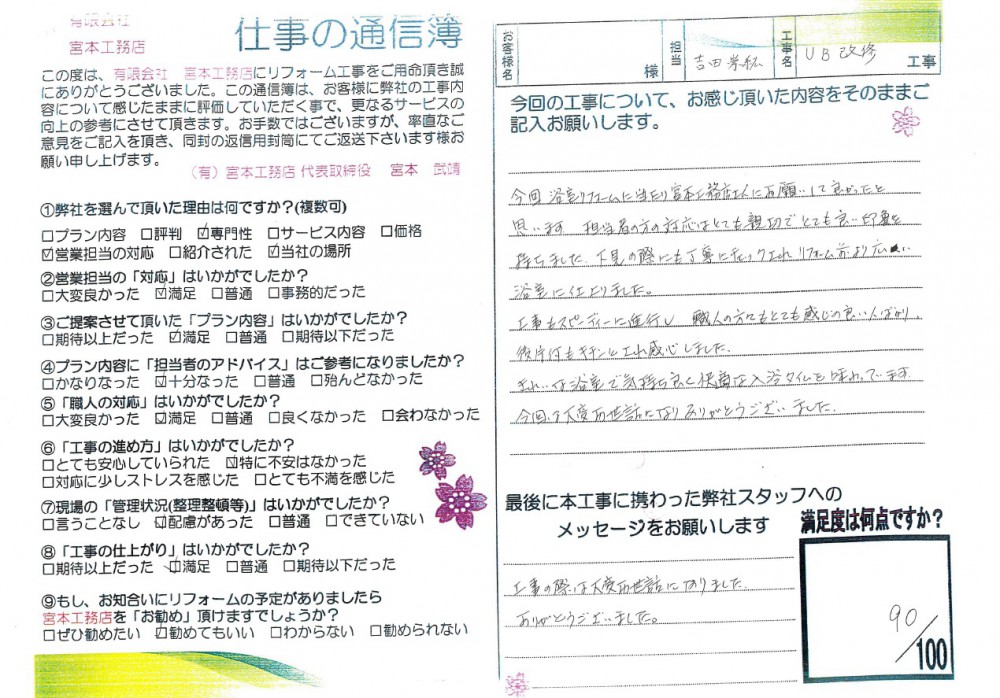 有限会社
宮本工務店
仕事の通信簿
この度は、有限会社 宮本工務店にリフォーム工事をご用命頂き誠
にありがとうございました。この通信簿は、お客様に弊社の工事内
容について感じたままに評価していただく事で、更なるサービスの
向上の参考にさせて頂きます。お手数ではございますが、率直なご
意見をご記入を頂き、同封の返信用封筒にてご返送下さいます様お
願い申し上げます。
(有)宮本工務店 代表取締役 宮本 武靖
①弊社を選んで頂いた理由は何ですか?(複数可)
□プラン内容 □評判 ☑専門性 □サービス内容 □価格
☑営業担当の対応 □紹介された ☑当社の場所
②営業担当の「対応」はいかがでしたか?
□大変良かった ☑満足 □普通 □事務的だった
③ご提案させて頂いた「プラン内容」はいかがでしたか?
□期待以上だった ☑満足 □普通 □期待以下だった
④プラン内容に「担当者のアドバイス」はご参考になりましたか?
□かなりなった ☑十分なった □普通 □殆んどなかった
⑤「職人の対応」はいかがでしたか?
□大変良かった ☑満足 □普通 □良くなかった □会わなかった
⑥「工事の進め方」はいかがでしたか?
□とても安心していられた ☑特に不安はなかった
□対応に少しストレスを感じた □とても不満を感じた
⑦現場の「管理状況(整理整頓等)」はいかがでしたか?
□言うことなし ☑配慮があった □普通 □できていない
⑧「工事の仕上がり」はいかがでしたか?
□期待以上だった ☑満足 □普通 □期待以下だった
⑨もし、お知合いにリフォームの予定がありましたら
宮本工務店を「お勧め」頂けますでしょうか?
□ぜひ勧めたい ☑勧めてもいい □わからない □勧められない
お客様名 様 担当 吉田 工事名 UB改修 工事
今回の工事について、お感じ頂いた内容をそのままご
記入お願いします。
今回浴室リフォームに当たり宮本工務店さんにお願いして良かったと
思います 担当者の方の対応はとても親切でとても良い印象を
持ちました。下見の際にも丁寧にチェックされ リフォーム前より広い
浴室に仕上りました。
工事もスピーディーに進行し 職人の方々もとても感じの良い人ばかり、
後片付もキチンとされ感心しました。
きれいな浴室で気持ち良く快適な入浴タイムを味わっています
今回は大変お世話になりありがとうございました。
最後に本工事に携わった弊社スタッフへの
メッセージをお願いします
工事の際は大変お世話になりました。
ありがとうございました。
満足度は何点ですか?
90/100